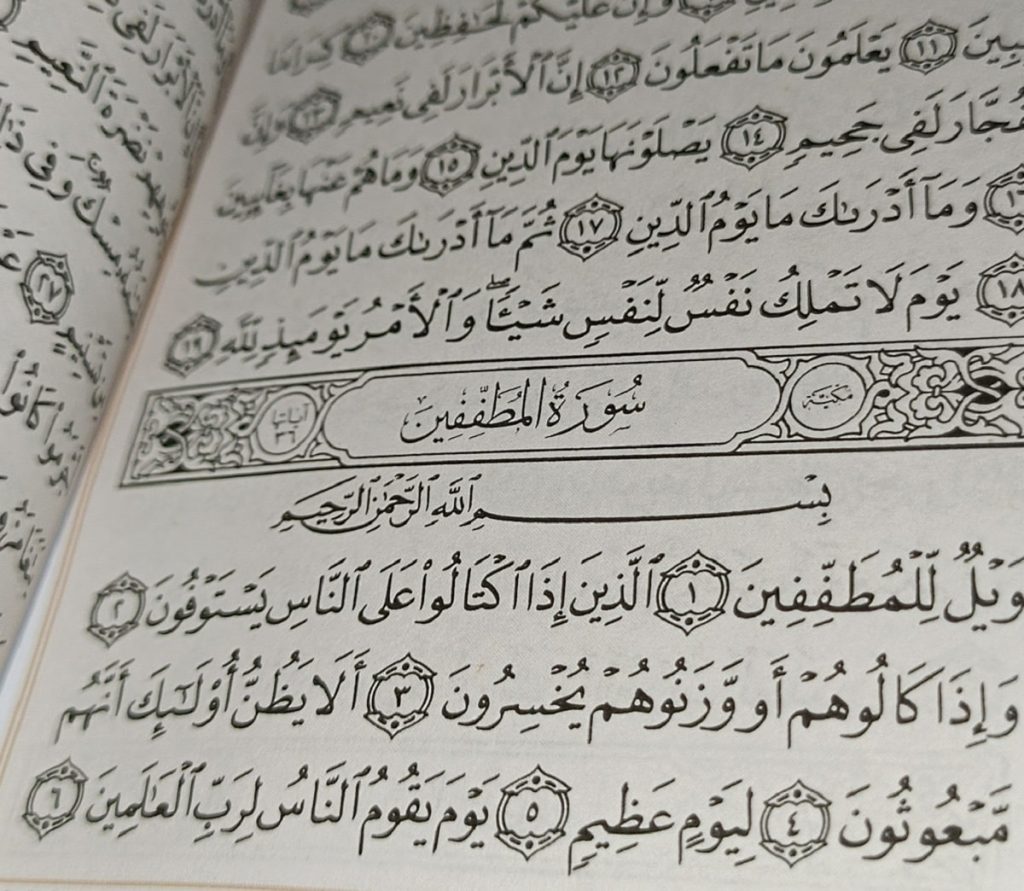 وَإِنَّ عَلَيْكُمْ لَحَٰفِظِينَ ١٠ كِرَامًا
يَعْلَمُونَ مَا تَفْعَلُونَ ١٢ إِنَّ ٱلْأَبْرَارَ لَفِى نَعِيمٍ ١٣ وَإِنَّ
لَفِى جَحِيمٍ ١٤ يَصْلَوْنَهَا يَوْمَ ٱلدِّينِ ١٥ وَمَا هُمْ عَنْهَا بِغَآئِبِينَ
١٦ وَمَآ أَدْرَىٰكَ مَا يَوْمُ ٱلدِّينِ ١٧ ثُمَّ مَآ أَدْرَىٰكَ مَا يَوْمُ ٱلدِّينِ
١٨ يَوْمَ لَا تَمْلِكُ نَفْسٌ لِّنَفْسٍ شَيْـًٔا ۖ وَٱلْأَمْرُ يَوْمَئِذٍ لِّلَّهِ ١٩
مكيّة سُورَةُ المُطَفِّفِينَ آياتها ٣٦
بِسْمِ ٱللَّهِ ٱلرَّحْمَٰنِ ٱلرَّحِيمِ
وَيْلٌ لِّلْمُطَفِّفِينَ ١ ٱلَّذِينَ إِذَا ٱكْتَالُوا۟ عَلَى ٱلنَّاسِ يَسْتَوْفُونَ ٢
وَإِذَا كَالُوهُمْ أَو وَّزَنُوهُمْ يُخْسِرُونَ ٣ أَلَا يَظُنُّ أُو۟لَٰٓئِكَ أَنَّهُم
مَّبْعُوثُونَ ٤ لِيَوْمٍ عَظِيمٍ ٥ يَوْمَ يَقُومُ ٱلنَّاسُ لِرَبِّ ٱلْعَٰلَمِينَ ٦